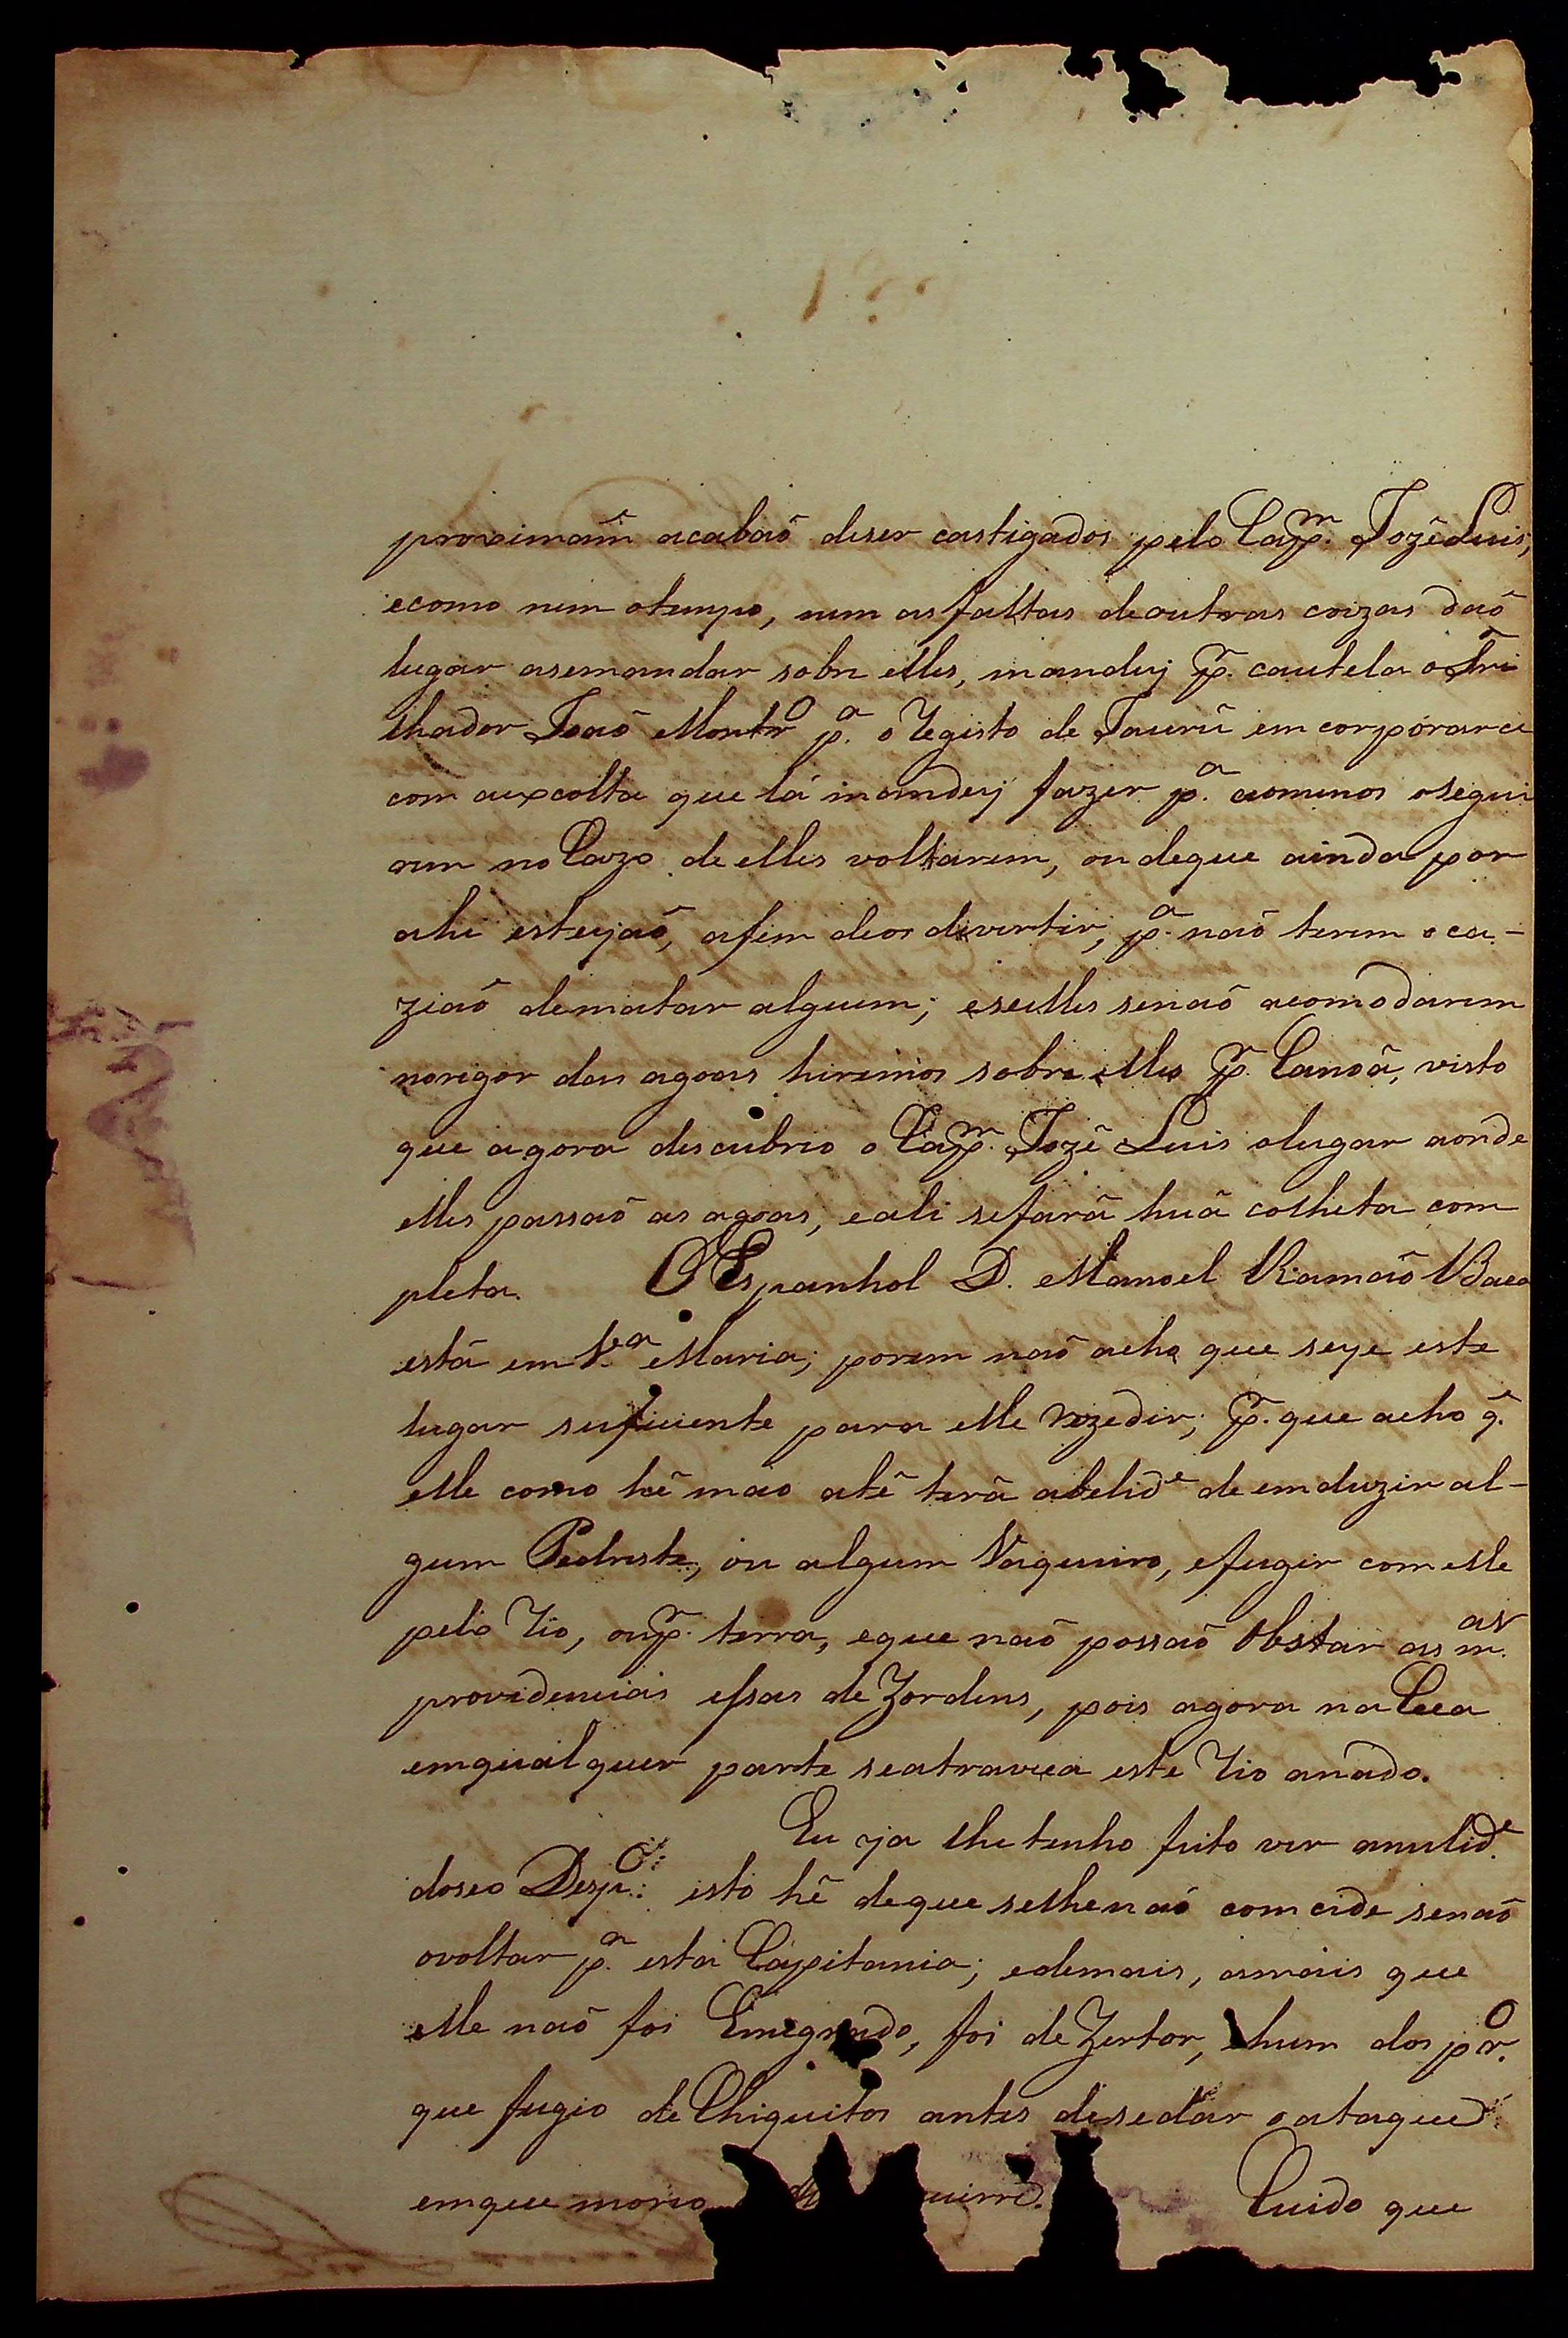 proximam.te acabaõ deser castigados pelo Cap.m Jozé Luis,
ecomo nem otempo, nem asfaltas deoutras coizas daõ
lugar asemandar sobre elles, mandey p.r cautela otri
lhador Joaõ Montr.o p.a o Registo de Jaurú emcorporarce
com aexcolta que lá mandey fazer p.a aomenos osegui
rem no Cazo de elles voltarem, ou deque ainda por
ahi estejaõ, afim deos divertir, p.a naõ terem oca-
ziaõ dematar alguem; eseelles senaõ acomodarem
norigor das agoas hiremos sobre elles p.r Canoã, visto
que agora descubrio o Cap.m Jozé Luis olugar aonde
elles passaõ as agoas, eali sefará huã colheta com
pleta. O Espanhol D. Manoel Ramaõ Baca
está em V.a Maria; porem naõ acho que seje este
lugar suficiente para elle rezedir; p.r que acho q.e
elle como hé mao até terá abelid.e de emduzir al-
gum Pedreste, ou algum Vaqueiro, efugir com elle
pelo rio, oup.r terra, eque naõ possaõ Obstar as m.as
providencias essas deZordens, pois agora na Ceca
emqualquer parte seatraveça este rio anado.
Eu ja lhe tenho feito ver anulid.e
doseo Desp.o: isto hé deque selhe naõ comcide senaõ
ovoltar p.a esta Capitania; edemais, amais que
elle naõ foi Emigrado, foi deZertor, ehum dos pr.o
que fugio de Chiquitos antes desedar oataque
emque moreo Cuido que